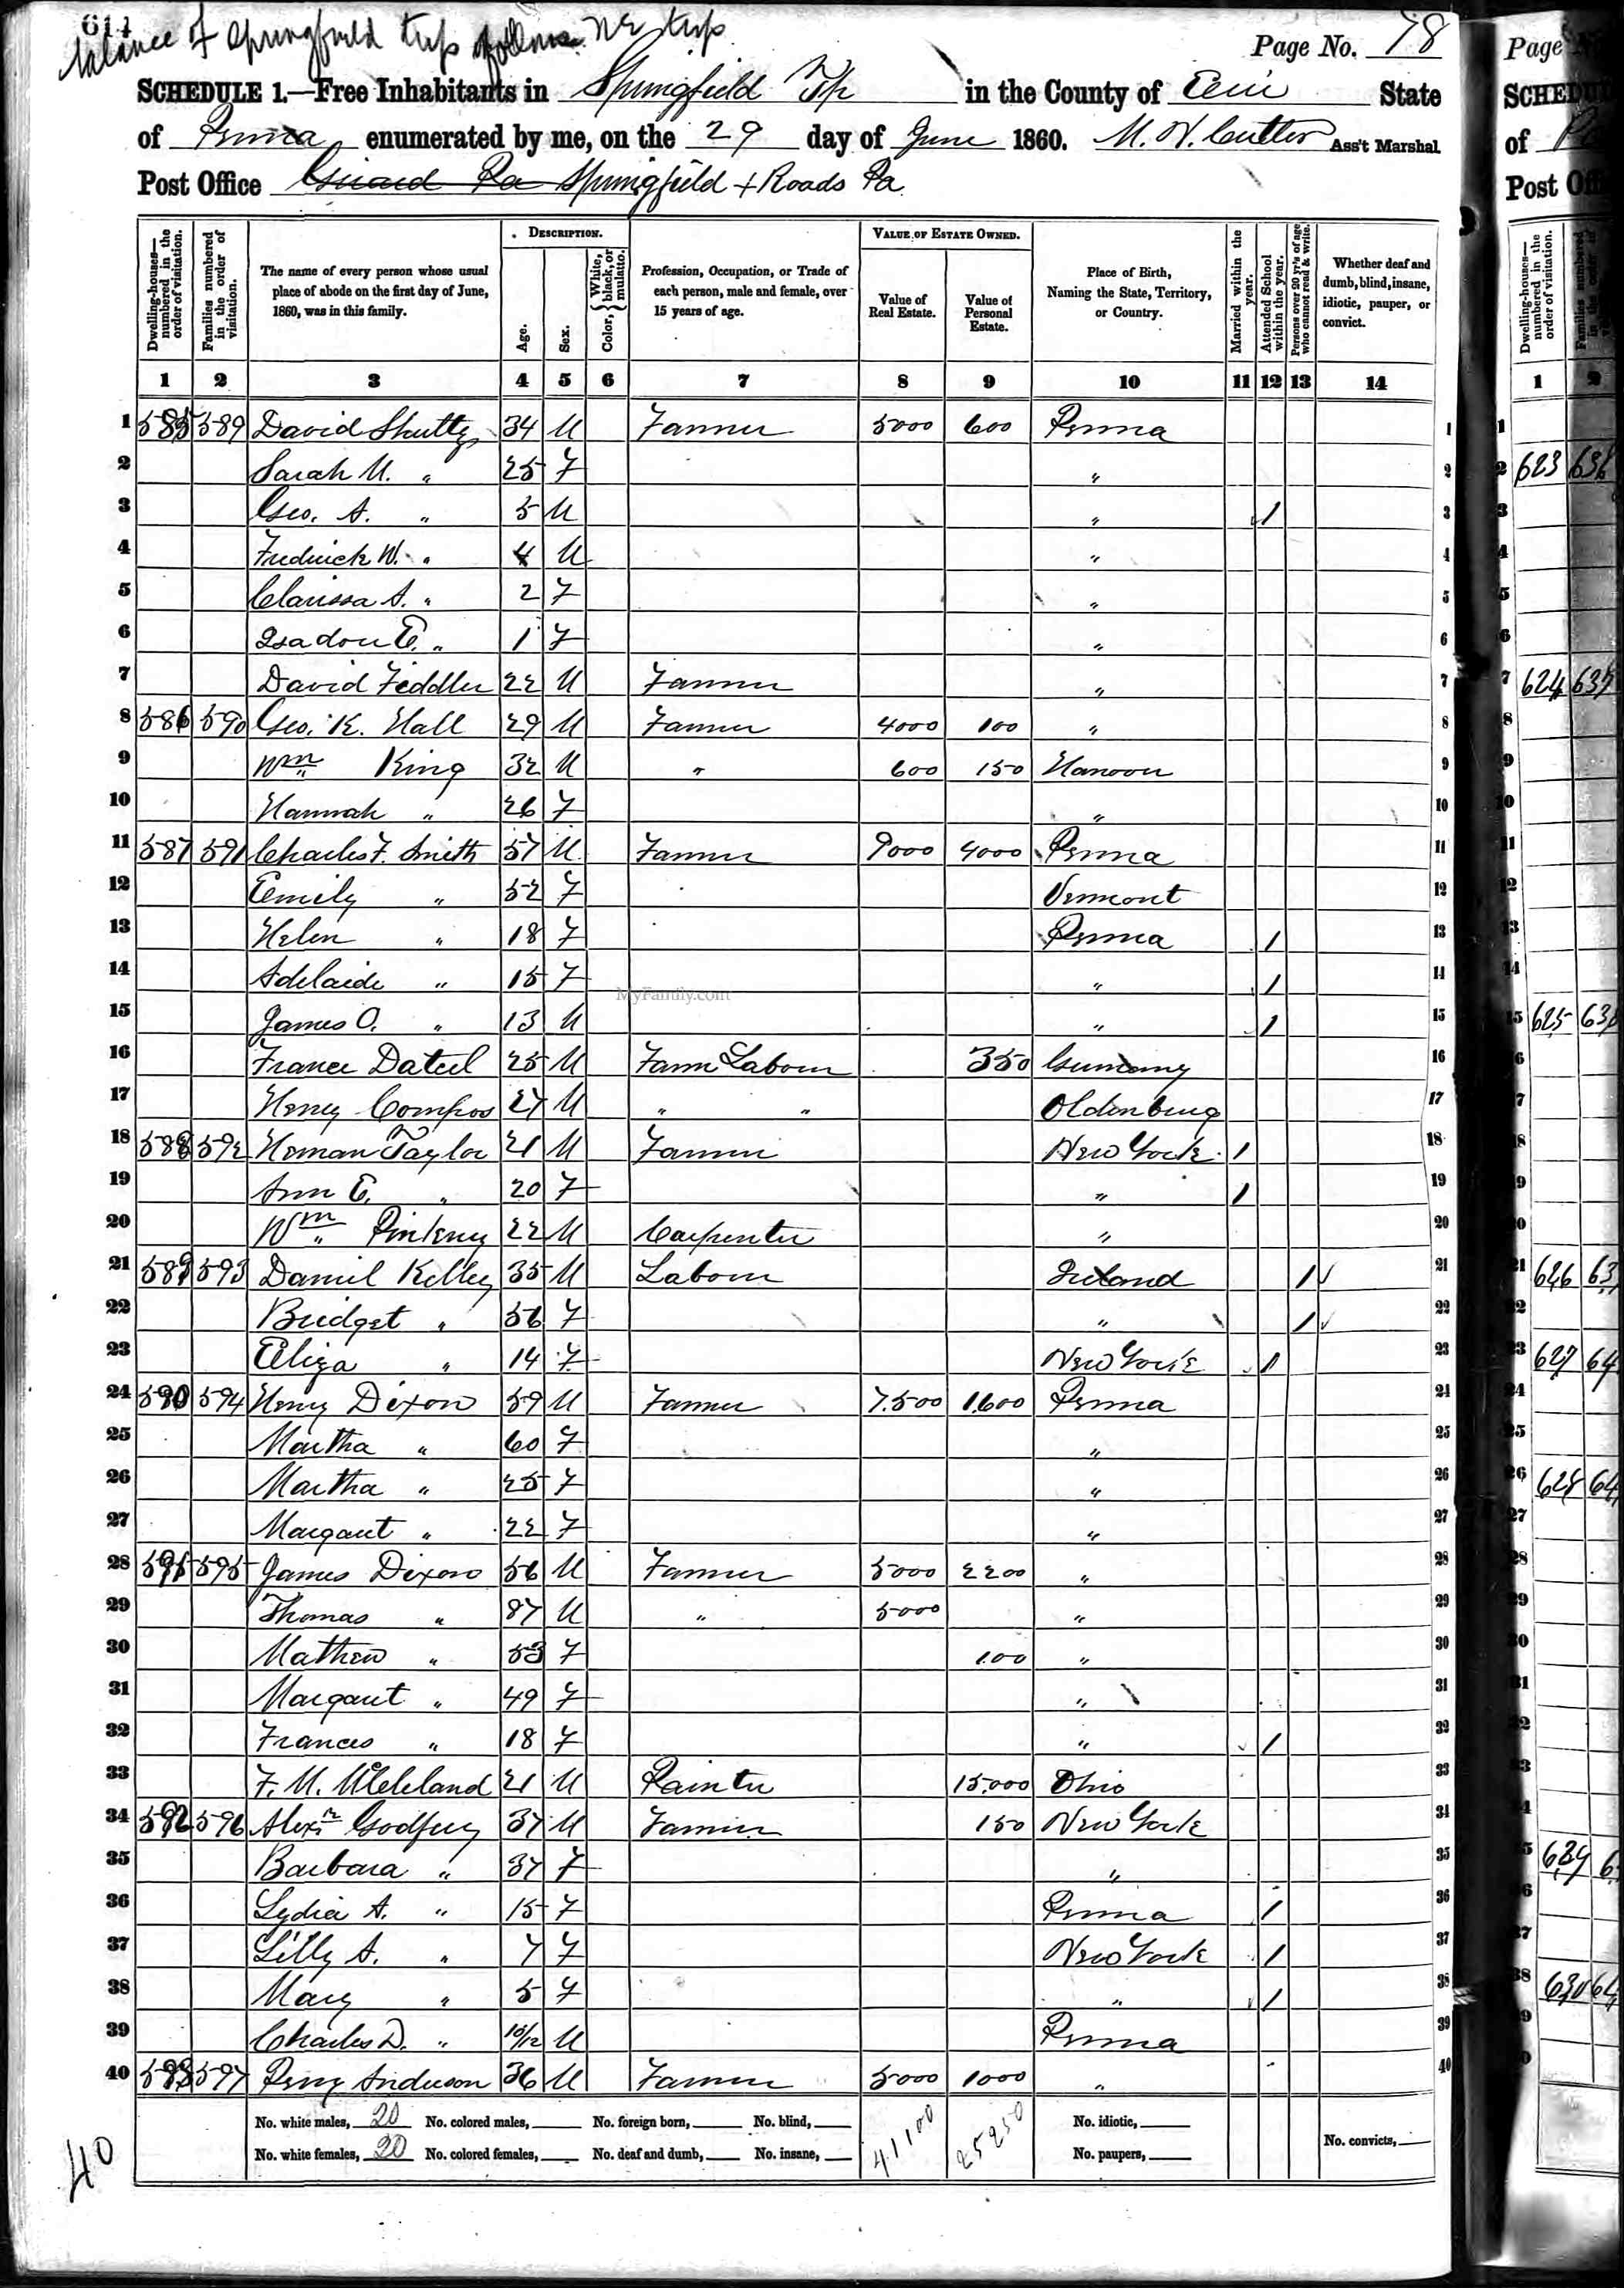 614
balance of Springfield twp follows Nr twp
Page No. 78
SCHEDULE 1.—Free Inhabitants in Springfield Tp in the County of Erie State
of Penna enumerated by me, on the 29 day of June 1860. M. H. Cutler Ass't Marshal
Post Office Girard Pa Springfield + Roads Pa
Dwelling-houses—numbered in the order of visitation.
Families numbered in the order of visitation.
The name of every person whose usual place of abode on the first day of June, 1860, was in this family.
DESCRIPTION.
Age.
Sex.
Color, { White, black, or mulatto.
Profession, Occupation, or Trade of each person, male and female, over 15 years of age.
VALUE OF ESTATE OWNED.
Value of Real Estate.
Value of Personal Estate.
Place of Birth, Naming the State, Territory, or Country.
Married within the year.
Attended School within the year.
Persons over 20 y'rs of age who cannot read & write.
Whether deaf and dumb, blind, insane, idiotic, pauper, or convict.
1 2 3 4 5 6 7 8 9 10 11 12 13 14
1 585 589 David Shutty 34 M Farmer 5000 600 Penna 1
2 Sarah M. " 25 F " 2
3 Geo. A. " 5 M " / 3
4 Fredrick W. " 4 M " 4
5 Clarissa A. " 2 F " 5
6 Isadore E. " 1 F " 6
7 David Feddler 22 M Farmer " 7
8 586 590 Geo. K. Hall 29 M Farmer 4000 100 " 8
9 Wm King 32 M " 600 150 Hanover 9
10 Hannah " 26 F " 10
11 587 591 Charles F. Smith 57 M Farmer 9000 4000 Penna 11
12 Emily " 52 F Vermont 12
13 Helen " 18 F Penna / 13
14 Adelaide " 15 F " / 14
15 James O. " 13 M " / 15
MyFamily.com
16 France Dateel 25 M Farm Laborer 350 Germany 16
17 Henry Compos 27 M " " Oldenburg 17
18 588 592 Heman Taylor 21 M Farmer New York / 18
19 Ann E. " 20 F " / 19
20 Wm Pinkney 22 M Carpenter " 20
21 589 593 Daniel Kelley 35 M Laborer Ireland / 21
22 Bridget " 56 F " / 22
23 Eliza " 14 F New York / 23
24 590 594 Henry Dixon 59 M Farmer 7.500 1.600 Penna 24
25 Martha " 60 F " 25
26 Martha " 25 F " 26
27 Margaret " 22 F " 27
28 591 595 James Dixon 56 M Farmer 5000 2200 " 28
29 Thomas " 87 M " 5000 " 29
30 Mathew " 53 F 100 " 30
31 Margaret " 49 F " 31
32 Frances " 18 F " / 32
33 F. M. McCleland 21 M Painter 15.000 Ohio 33
34 592 596 Alexr Godfrey 37 M Farmer 150 New York 34
35 Barbara " 37 F " 35
36 Lydia A. " 15 F Penna / 36
37 Lilly A. " 7 F New York / 37
38 Mary " 5 F " / 38
39 Charles D. " 10/12 M Penna 39
40 593 597 Perry Anderson 36 M Farmer 5000 1000 " 40
No. white males, 20 No. colored males, No. foreign born, No. blind, 41100 25250 No. idiotic,
No. white females, 20 No. colored females, No. deaf and dumb, No. insane, No. paupers, No. convicts,
40
Page
SCHED
of
Post Off
623
624
625
626
627
628
629
630